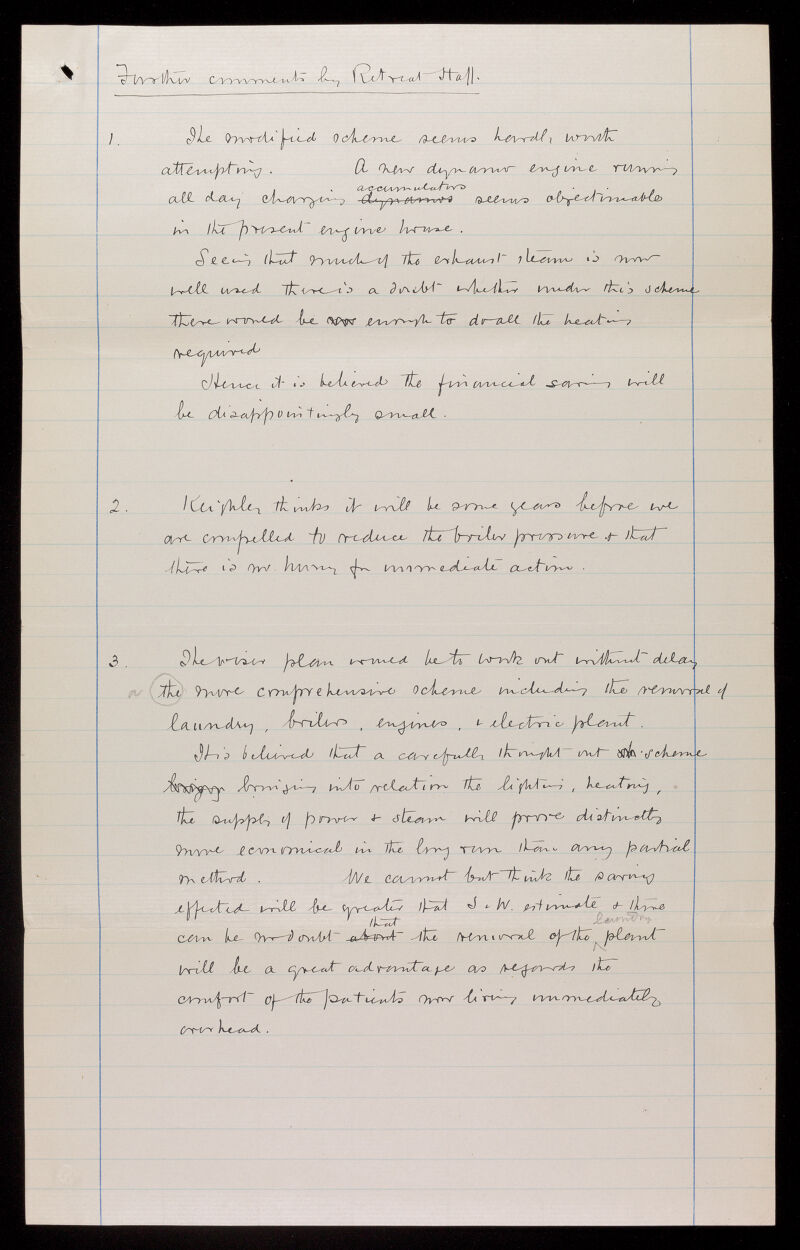 Further comments by Retreat Staff.
1. The modified scheme seems hardly worth
attempting. A new dynamo engine running
accumulators
all day charging dynamos seems objectionable
in the present engine house.
Seeing that much of the exhaust steam is now
well used there is a doubt whether under this scheme
there would be enough to do all the heating
required
Hence it is believed the financial saving will
be disappointingly small.
2. Keighley thinks it will be some years before we
are compelled to reduce the boiler pressure & that
there is no hurry for immediate action.
3. The wiser plan would be to work out without delay
a the more comprehensive scheme including the removal of
laundry, boilers, engines, & electric plant.
It is believed that a carefully thought out scheme
bringing into relation the lighting, heating,
the supply of power & steam will prove distinctly
more economical in the long run than any partial
method. We cannot but think the saving
effected will be greater that S & W. estimate & there
that laundry
can be no doubt about the removal of the plant
will be a great advantage as regards the
comfort of the patients now living immediately
overhead.